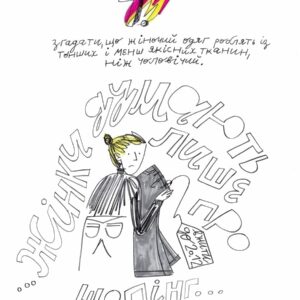 згадати, що жіночий одяг роблять із
тонших і менш якісних тканин,
ніж чоловічий.
...жінки думають
лише про
шопінг...